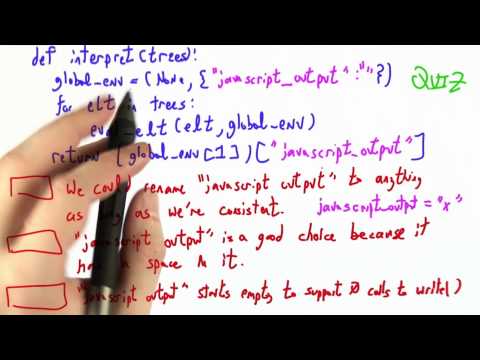 def interpret(trees):
global_env = (None, {"javascript_output":""})
QUIZ
for elt in trees:
eval_elt(elt, global_env)
return (global_env[1])["javascript_output"]
We could rename "javascript output" to anything
as long as we're consistent. javascript_output = "x"
"javascript output" is a good choice because it
has a space in it.
"javascript output" starts empty to support 0 calls to write()